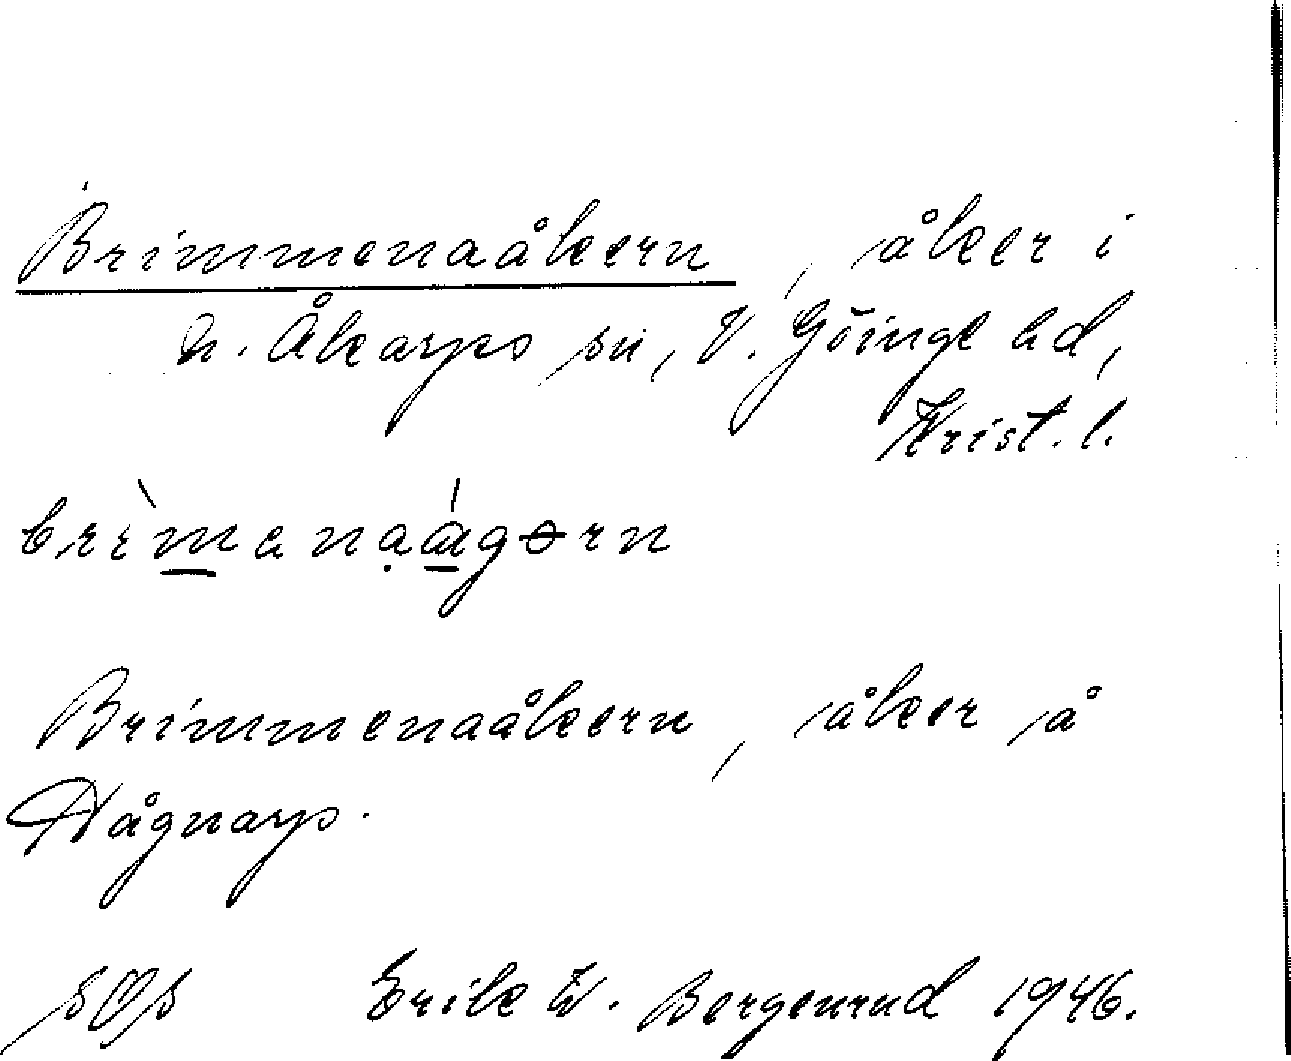 Brimmenaåkern, åker i
n. Åkarps sn, V. Göinge hd,
Krist. l.
Brimmenaåkern, åker å
Hågnarp.
Erik W. Bergenrud 1946.